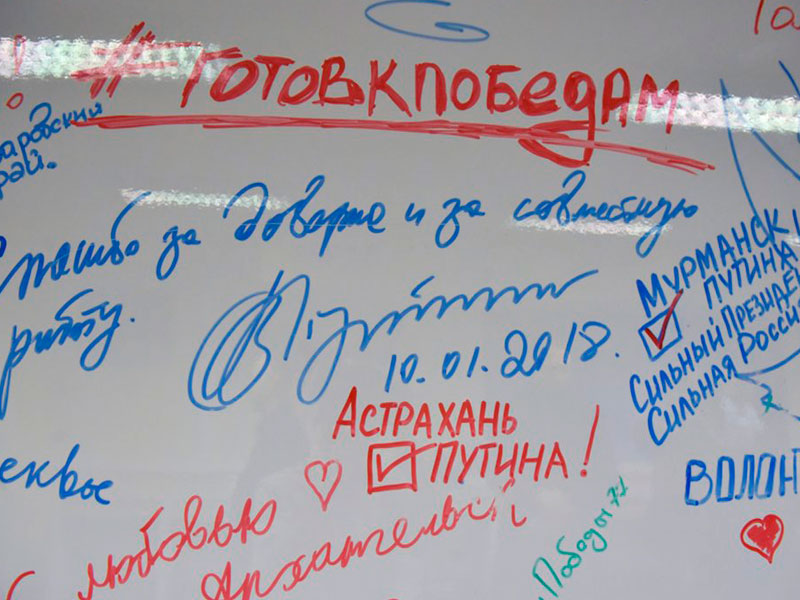 #ГОТОВКПОБЕДАМ
край.
Спасибо за доверие и за совместную
работу.
10.01.2018.
МУРМАНСК
ПУТИНА
СИЛЬНЫЙ ПРЕЗИДЕН
СИЛЬНАЯ РОССИ
АСТРАХАНЬ
ПУТИНА!
ВОЛОНТ
С любовью
Архангельск